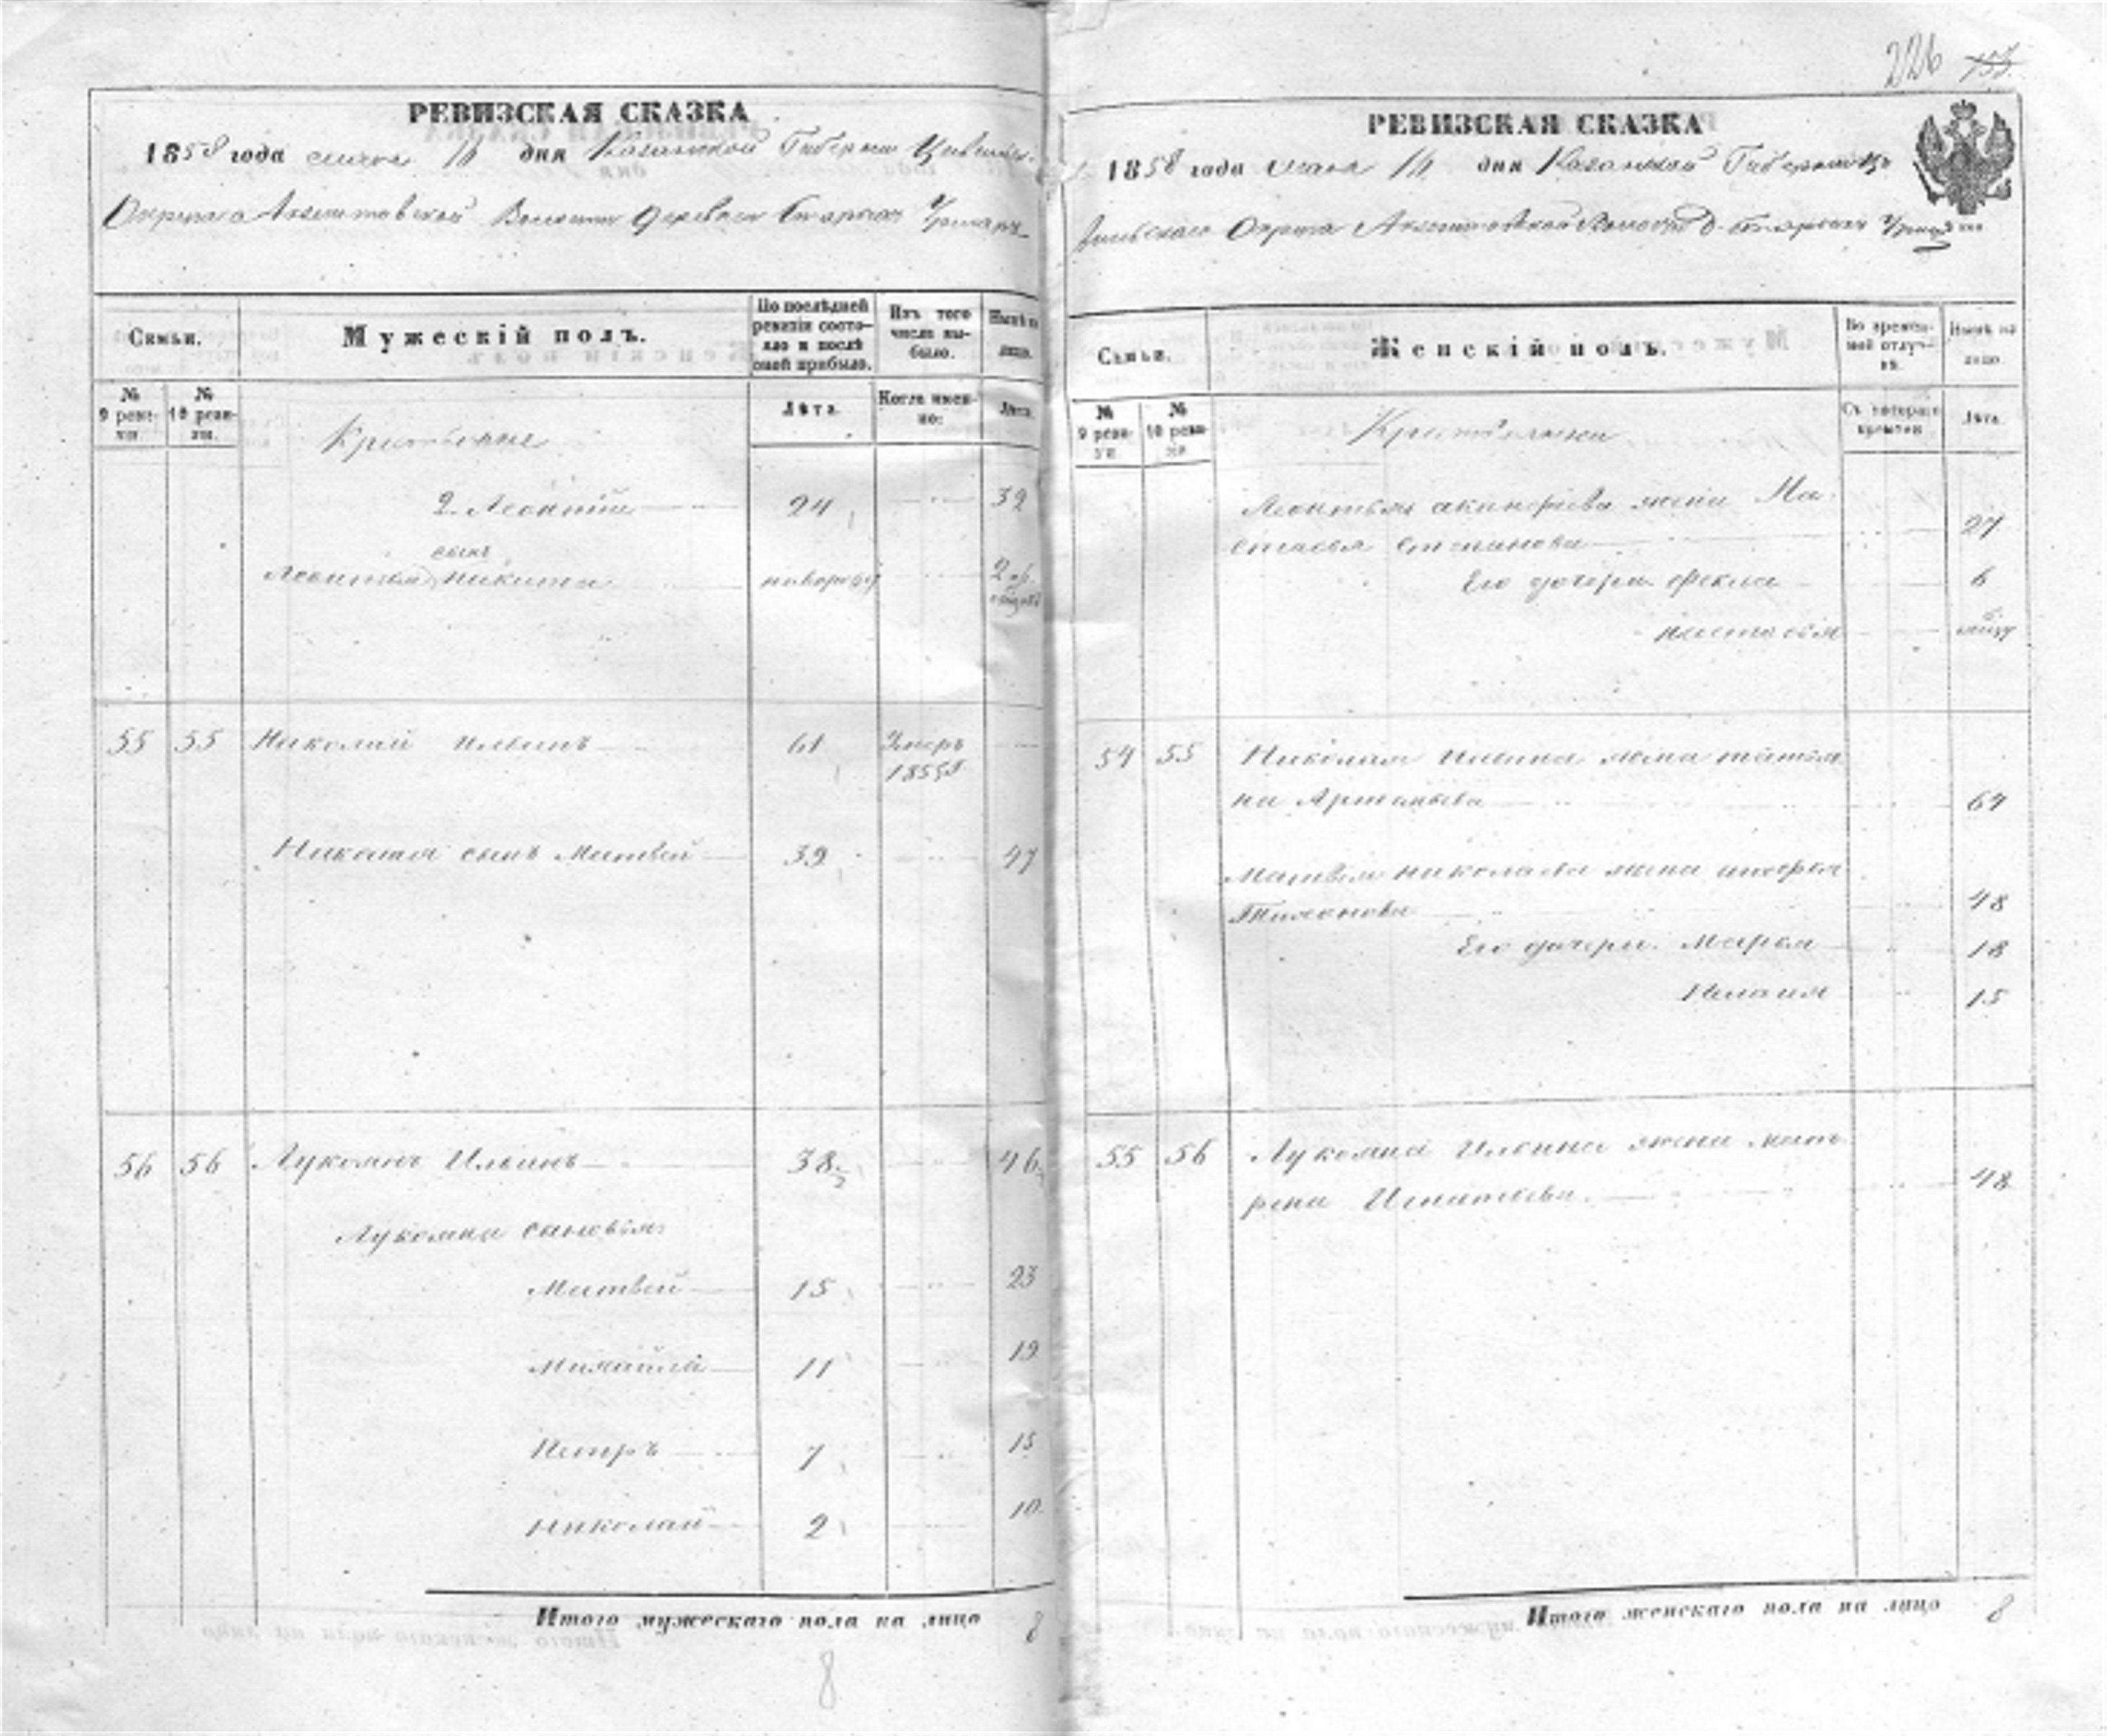 226 155
РЕВИЗСКАЯ СКАЗКА
1858 года 16 дня Казанской Губернии Цивиль-
Округа Волости деревни Старых
Семьи.
Мужескій полъ.
По послѣдней ревизіи состояло и послѣ оной прибыло.
Изъ того числа выбыло.
Нынѣ на лицо.
№ 9 ревизіи.
№ 10 ревизіи.
Лѣта.
Когда именно:
Лѣта.
Крестьяне
2. Леонтій 24 32
сынъ
Леонтья Никита новорож
55 55 Николай Ильинъ 61 Умеръ
Николая сынъ Матвей 39 47
56 56 Лукоянъ Ильинъ 38 46
Лукояна сыновья:
Матвей 15 23
Михайла 11 19
Петръ 7 15
Николай 2 10
Итого мужескаго пола на лицо 8
8
РЕВИЗСКАЯ СКАЗКА
1858 года 16 дня Казанской Губернии Ци
вильскаго Округа Волости д. Старых
Семьи.
Женскій полъ.
Во временной отлучкѣ.
Нынѣ на лицо.
№ 9 ревизіи.
№ 10 ревизіи.
Съ котораго времени.
Лѣта.
Крестьянки
Леонтья акинфіева жена На-
стасья Степанова 27
Его дочери Фекла 6
настасья
54 55 Николая Ильина жена татья
на Артемьева 64
Матвея николаева жена
Тихонова 48
Его дочери. Марья 18
Пелагия 15
55 56 Лукояна Ильина жена мат
рена Игнатьева 48
Итого женскаго пола на лицо 8